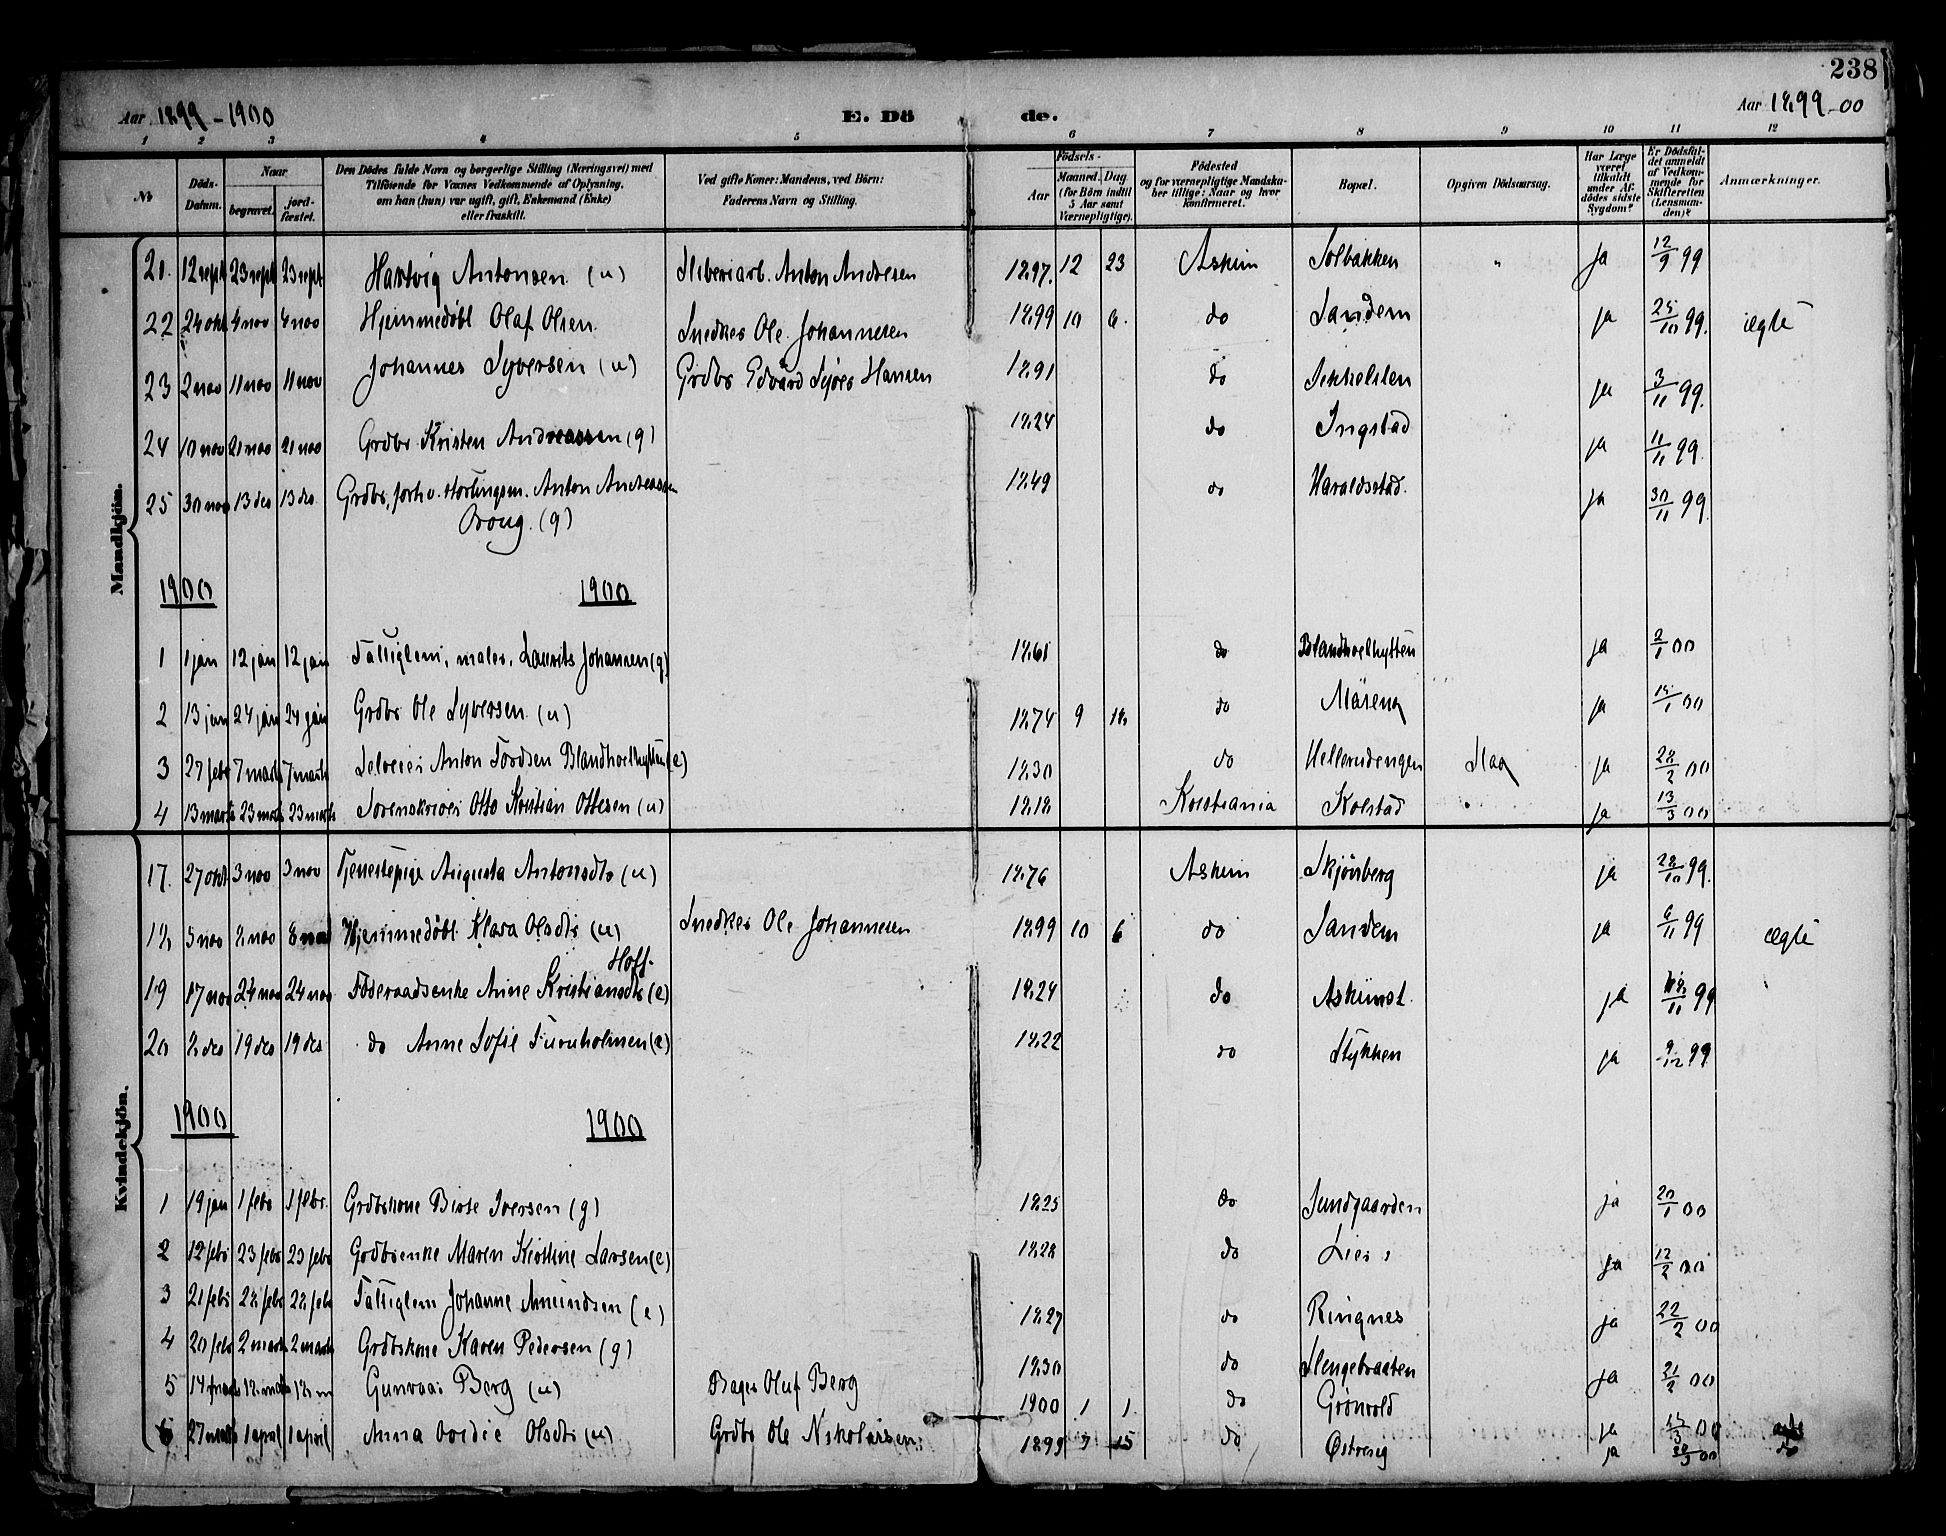 238
Aar 1899-1900 E. Dö de. Aar 1899-00
1 2 3 4 5 6 7 8 9 10 11 12
№ Döds-Datum. Naar begravet. jordfæstet. Den Dödes fulde Navn og borgerlige Stilling (Næringsvei) med Tilföiende for Voxnes Vedkommende af Oplysning, om han (hun) var ugift, gift, Enkemand (Enke) eller fraskilt. Ved gifte Koner: Mandens, ved Börn: Faderens Navn og Stilling. Födsels- Aar Maaned. Dag. (for Börn indtil 5 Aar samt Værnepligtige). Födested og for værnepligtige Mandskaber tillige: Naar og hvor konfirmeret. Bopæl. Opgiven Dödsaarsag. Har Læge været tilkaldt under Afdödes sidste Sygdom? Er Dödsfaldet anmeldt af Vedkommende for Skifteretten (Lensmanden)? Anmærkninger.
Mandkjön.
21. 12 sept 23 sept 23 sept Hartvig Antonsen (u) Sliberiarb. Anton Andresen 1897. 12 23 Askim Solbakken " ja 12/9 99
22 24 okt 4 nov 4 nov Hjemmedøbt Olaf Olsen. Snedker Ole Johannesen 1899 10 6. do Sandem ja 25/10 99. ægte
23 2 nov 11 nov 11 nov Johannes Syversen (u) Grdbr Edvard Syver Hansen 1891 do Sekkelsten ja 3/11 99.
24 10 nov 21 nov 21 nov Grdbr. Kristen Andreassen (g) 1824 do Ingstad ja 11/11 99.
25 30 nov 13 des 13 des. Grdbr, forhv. stortingsm. Anton Andreassen 1849 do Haraldsstad. ja 30/11 99.
Broug. (g)
1900 1900
1 1 jan 12 jan 12 jan Fattiglem, maler, Laurits Johansen (g) 1861 do Blandhoelhytten ja 2/1 00
2 13 jan 24 jan 24 jan Grdbr Ole Syversen. (u) 1874 9 18. do Mäseng ja 15/1 00
3 27 febr 7 marts 7 marts Selveier Anton Tordsen Blandhoelhytten (e) 1830 do Hellerudengen Slag ja 28/2 00
4 13 marts 23 marts 23 marts Sorenskriver Otto Kristian Ottesen (u) 1818 Kristiania Kolstad ja 13/3 00
Kvindekjön.
17. 27 okt 3 nov 3 nov Tjenestepige Augusta Antonsdtr (u) 1876 Askim Skjönberg ja 28/10 99.
18. 5 nov 8 nov 8 nov Hjemmedøbt Klara Olsdtr (u) Snedker Ole Johannesen 1899 10 6 do Sandem ja 6/11 99 ægte
Hoff-
19 17 nov 24 nov 24 nov Föderaadsenke Anne Kristiansdtr (e) 1824 do Askimst. ja 18/11 99
20 8. des 19 des 19 des do Anne Sofie Furuholmen (e) 1822 do Stykken ja 9/12 99
1900 1900
1 19 jan 1 febr 1 febr. Grdbrkone Birte Iversen (g) 1825 do Sundgaarden ja 20/1 00
2 12 febr 23 febr 23 febr Grdbrenke Maren Kirstine Larsen (e) 1828 do Lier ja 12/2 00
3 21 febr 28 febr 28 febr Fattiglem Johanne Amundsen (e) 1827 do Ringnes ja 22/2 00
4 20 febr 2 marts 2 marts Grdbrkone Karen Pedersen (g) 1830 do Slengebraaten ja 21/2 00
5 14 marts 18. marts 18. m Gunvaar Berg (u) Bager Oluf Berg 1900 1 1 do Grönvold ja 15/3 00
6 27 marts 1 april 1 april Anna Vordie Olsdtr (u) Grdbr Ole Nikolaisen. 1899 7 15 do Østreng ja 28/3 00 do